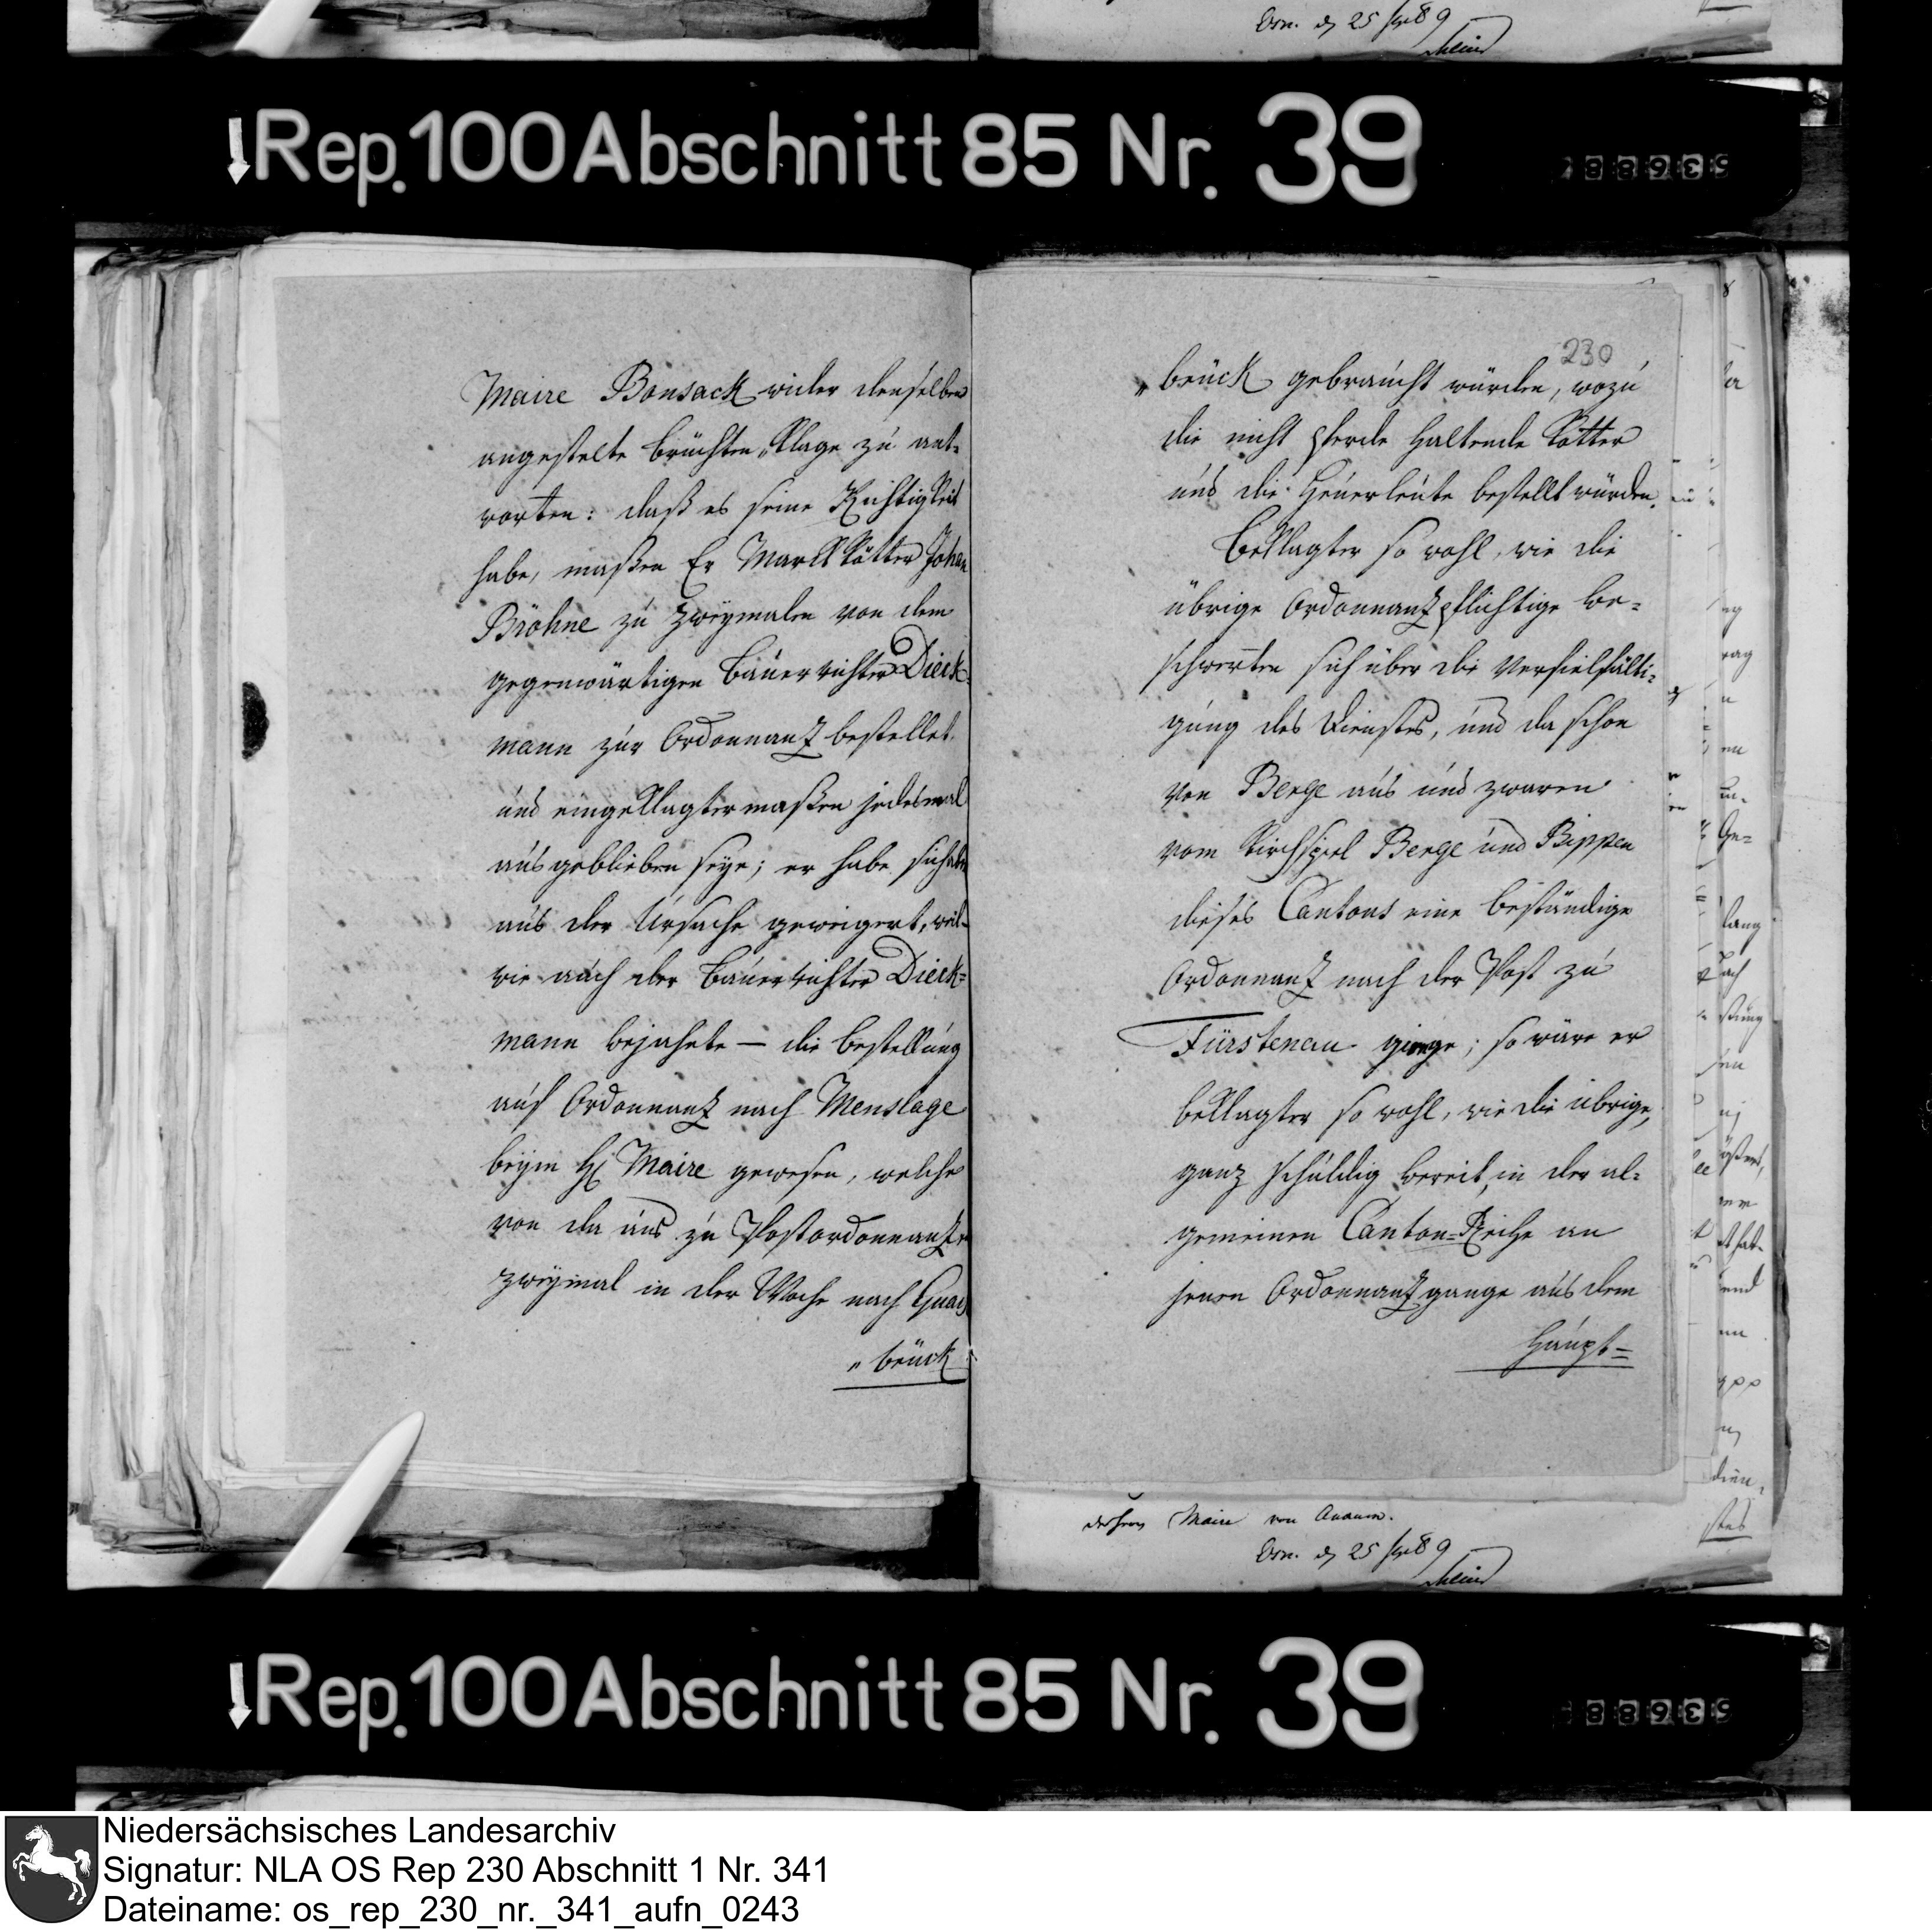 Osn. d 25 
Rep. 100 Abschnitt 85 Nr. 39
53688
Maire Bonsack wider denselben
angestelte Brüchten-Klage zu ant-
worten: daß es seine Richtigkeit
habe, maßen Er Markkötter Johan
Bröhne zu zweymalen von dem
gegenwärtigen Bauerrichter Dieck-
mann zur Ordonnantz bestellet.
und eingeklagtermaßen jedesmal
ausgeblieben seye; er habe sich aber
aus der Ursache geweigert, weil-
wie auch der Bauerrichter Dieck=
mann bejahete — die Bestellung
auf Ordonnantz nach Menslage
beym H Maire gewesen, welche
von da aus zu Postordonnantz
zweymal in der Woche nach Quak
„brück
230
„brück gebraucht würden, wozu
die nicht pferde haltende Kötter
und die Heuerleute bestellt würden.
Beklagter so wohl, wie die
übrige Ordonnantzpflichtige be=
schwerten sich über die Verfielfälti=
gung des Dienstes, und da schon
von Berge aus und zwaren
vom Kirchspiel Berge und Bippen
dieses Cantons eine beständige
Ordonnantz nach der Post zu
Fürstenau ginge; so wäre er
beklagter so wohl, wie die übrige,
ganz schuldig bereit, in der al=
gemeinen Canton=Reihe an
jenen Ordonnantzgange aus dem
Haupt=
Maire von Ankum.
Osn. d 25
Rep. 100 Abschnitt 85 Nr. 39
53688
Niedersächsisches Landesarchiv
Signatur: NLA OS Rep 230 Abschnitt 1 Nr. 341
Dateiname: os_rep_230_nr._341_aufn_0243